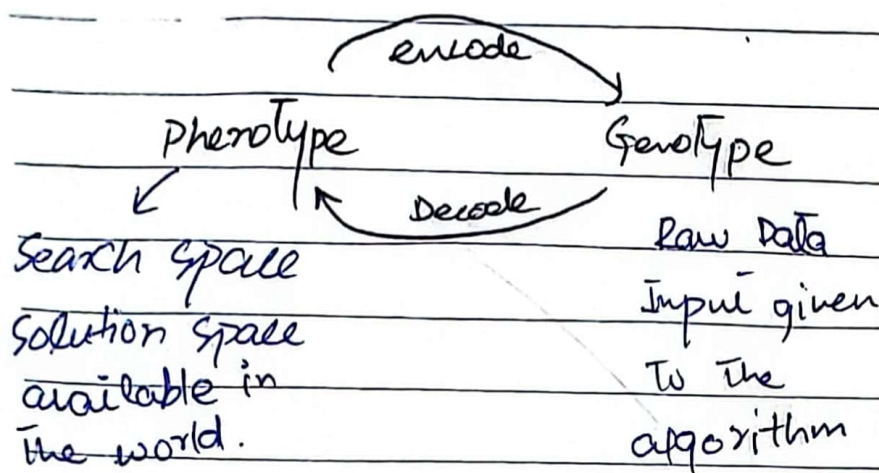 encode
Phenotype Genotype
Decode
Search space
Solution space
available in
The world.
Raw Data
Input given
To The
algorithm